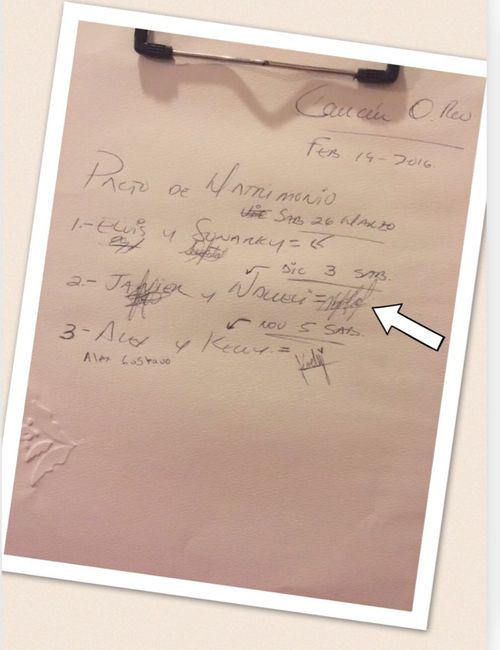 Cancún Q. Roo
FEB 14-2016.
PACTO DE MATRIMONIO
SAB 26 MARZO
1.- ELVIS Y SUNANKY =
DIC 3 SAB.
2.- JAVVIER Y NALLELI =
NOV 5 SAB.
3- ALEX Y KELLY. =
ALEX GUSTAVO Kelly